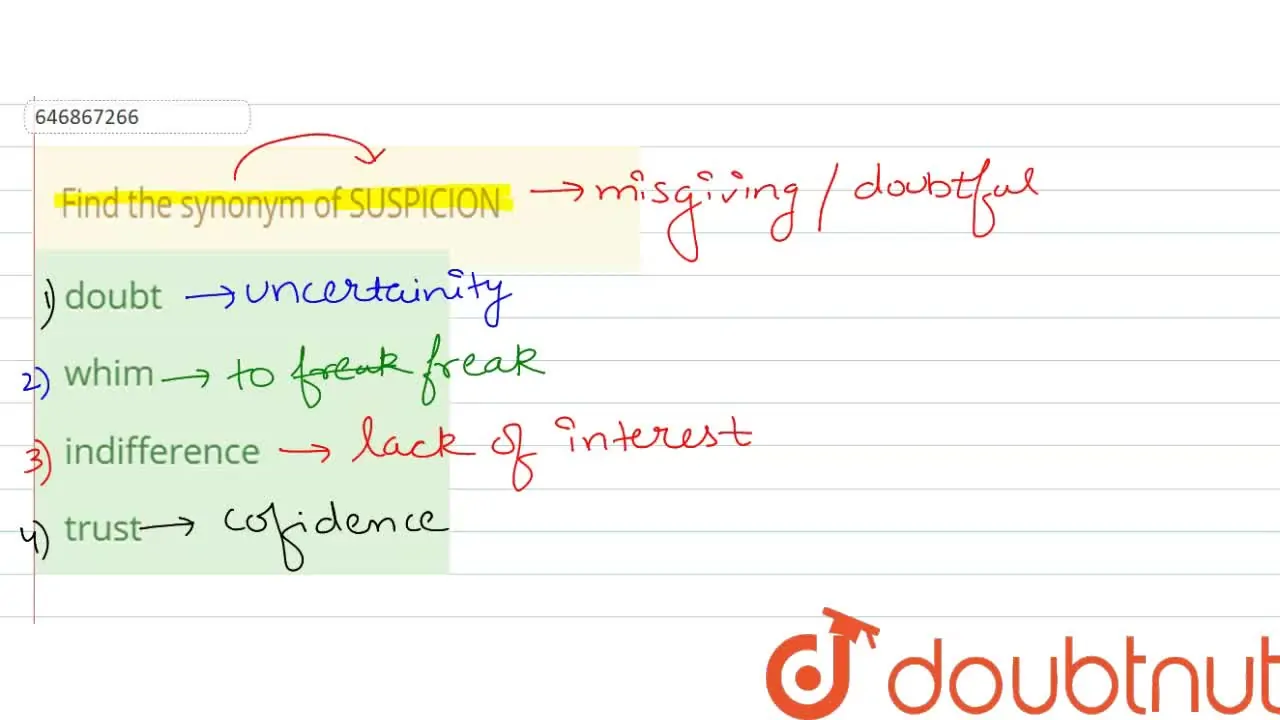 646867266
Find the synonym of SUSPICION → misgiving / doubtful
1) doubt → uncertainity
2) whim → to freak freak
3) indifference → lack of interest
4) trust → cofidence
doubtnut